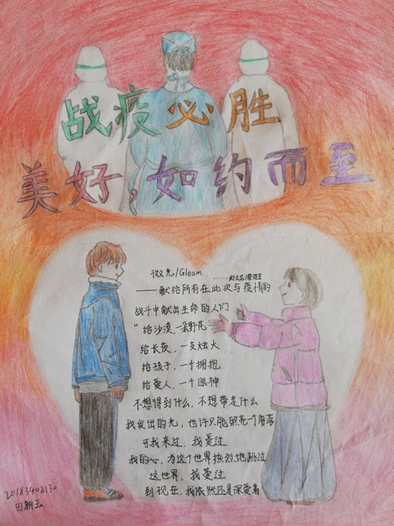 战疫必胜
美好,如约而至
微光/Gleam
——献给所有在此次与疫情的
战斗中献出生命的人们
“给沙漠,一朵野花
给长夜,一支烛火
给孩子,一个拥抱
给爱人,一个眼神
不想得到什么,不想带走什么
我发出的光,也许只能照亮一个角落
可我来过,我爱过
我的心,为这个世界热烈地跳过
这世界,我爱过
到现在,我依然还是深爱着
2018340213
田朝玉